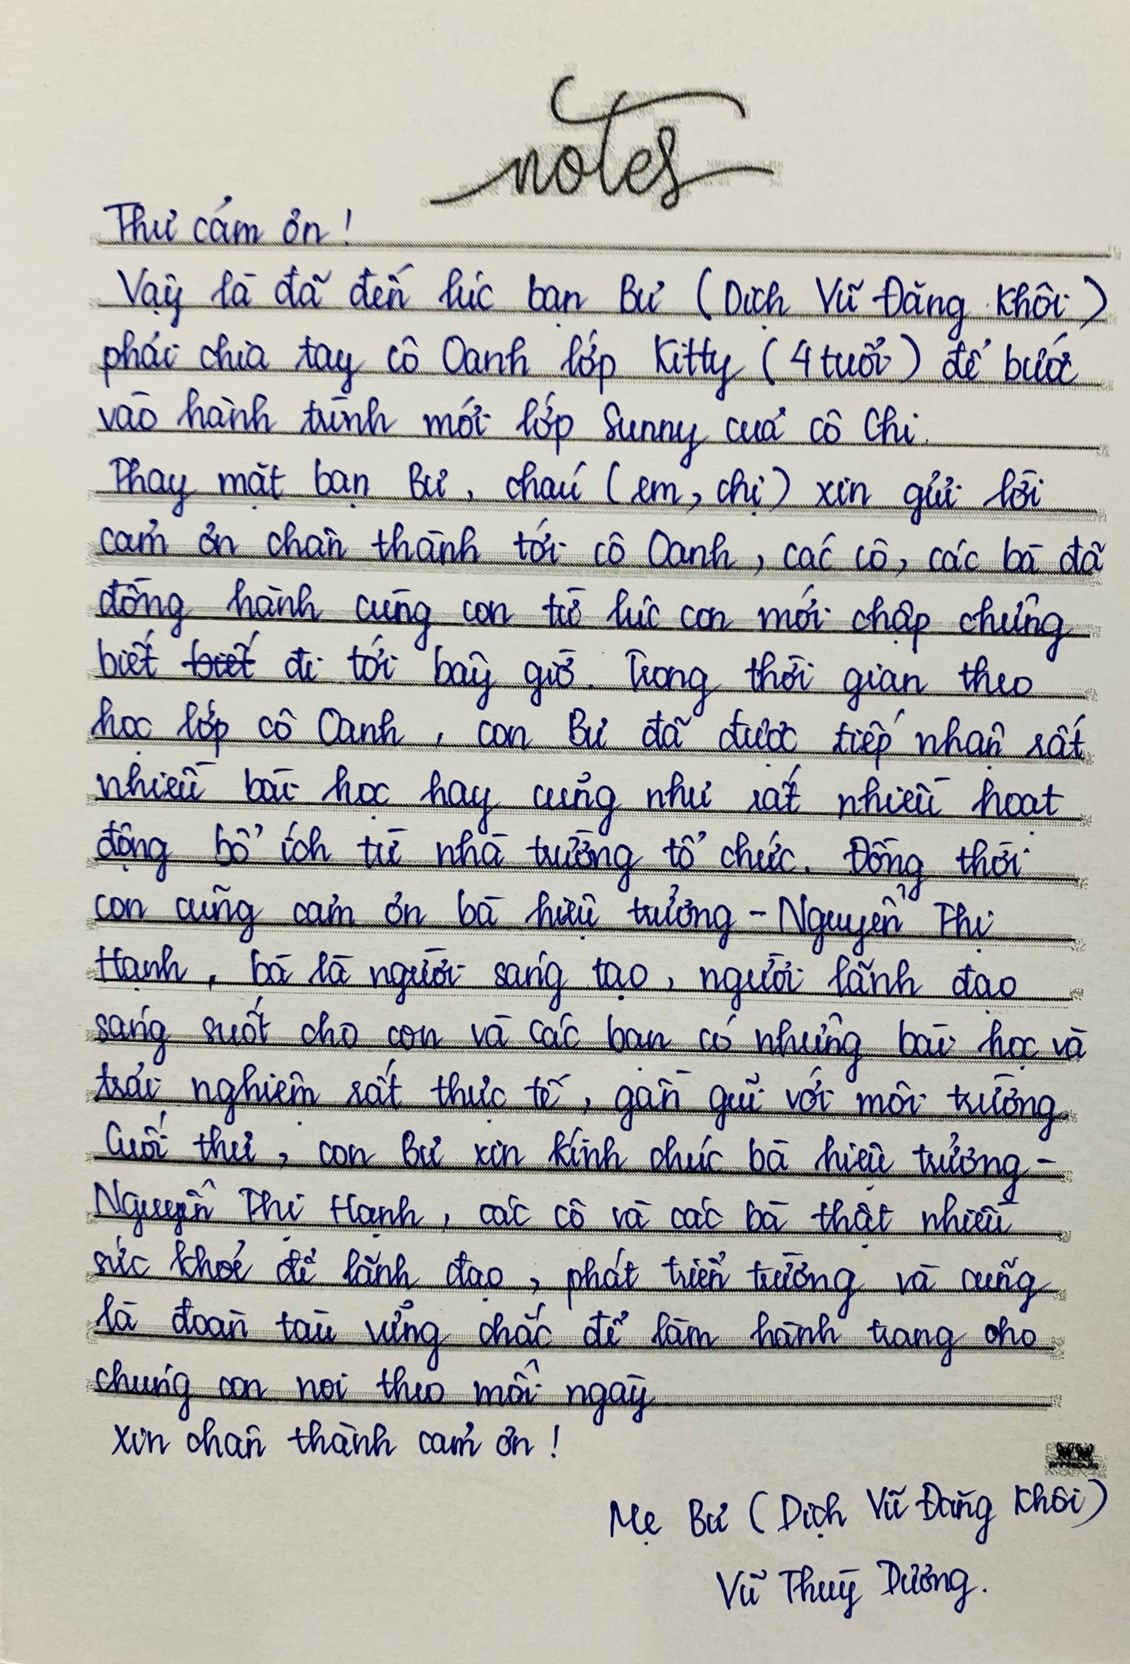 notes
Thư cảm ơn !
Vậy là đã đến lúc bạn Bư (Dịch Vũ Đăng Khôi)
phải chia tay cô Oanh lớp Kitty (4 tuổi) để bước
vào hành trình mới lớp Sunny của cô Chi.
Thay mặt bạn Bư, cháu (em, chị) xin gửi lời
cảm ơn chân thành tới cô Oanh, các cô, các bà đã
đồng hành cùng con từ lúc con mới chập chững
biết biết đi tới bây giờ. Trong thời gian theo
học lớp cô Oanh, con Bư đã được tiếp nhận rất
nhiều bài học hay cũng như rất nhiều hoạt
động bổ ích từ nhà trường tổ chức. Đồng thời
con cũng cảm ơn bà hiệu trưởng - Nguyễn Thị
Hạnh, bà là người sáng tạo, người lãnh đạo
sáng suốt cho con và các bạn có những bài học và
trải nghiệm rất thực tế, gần gũi với môi trường
Cuối thư, con Bư xin kính chúc bà hiệu trưởng -
Nguyễn Thị Hạnh, các cô và các bà thật nhiều
sức khoẻ để lãnh đạo, phát triển trường và cũng
là đoàn tàu vững chắc để làm hành trang cho
chúng con noi theo mỗi ngày
xin chân thành cảm ơn !
Mẹ Bư (Dịch Vũ Đăng Khôi)
Vũ Thuỳ Dương.